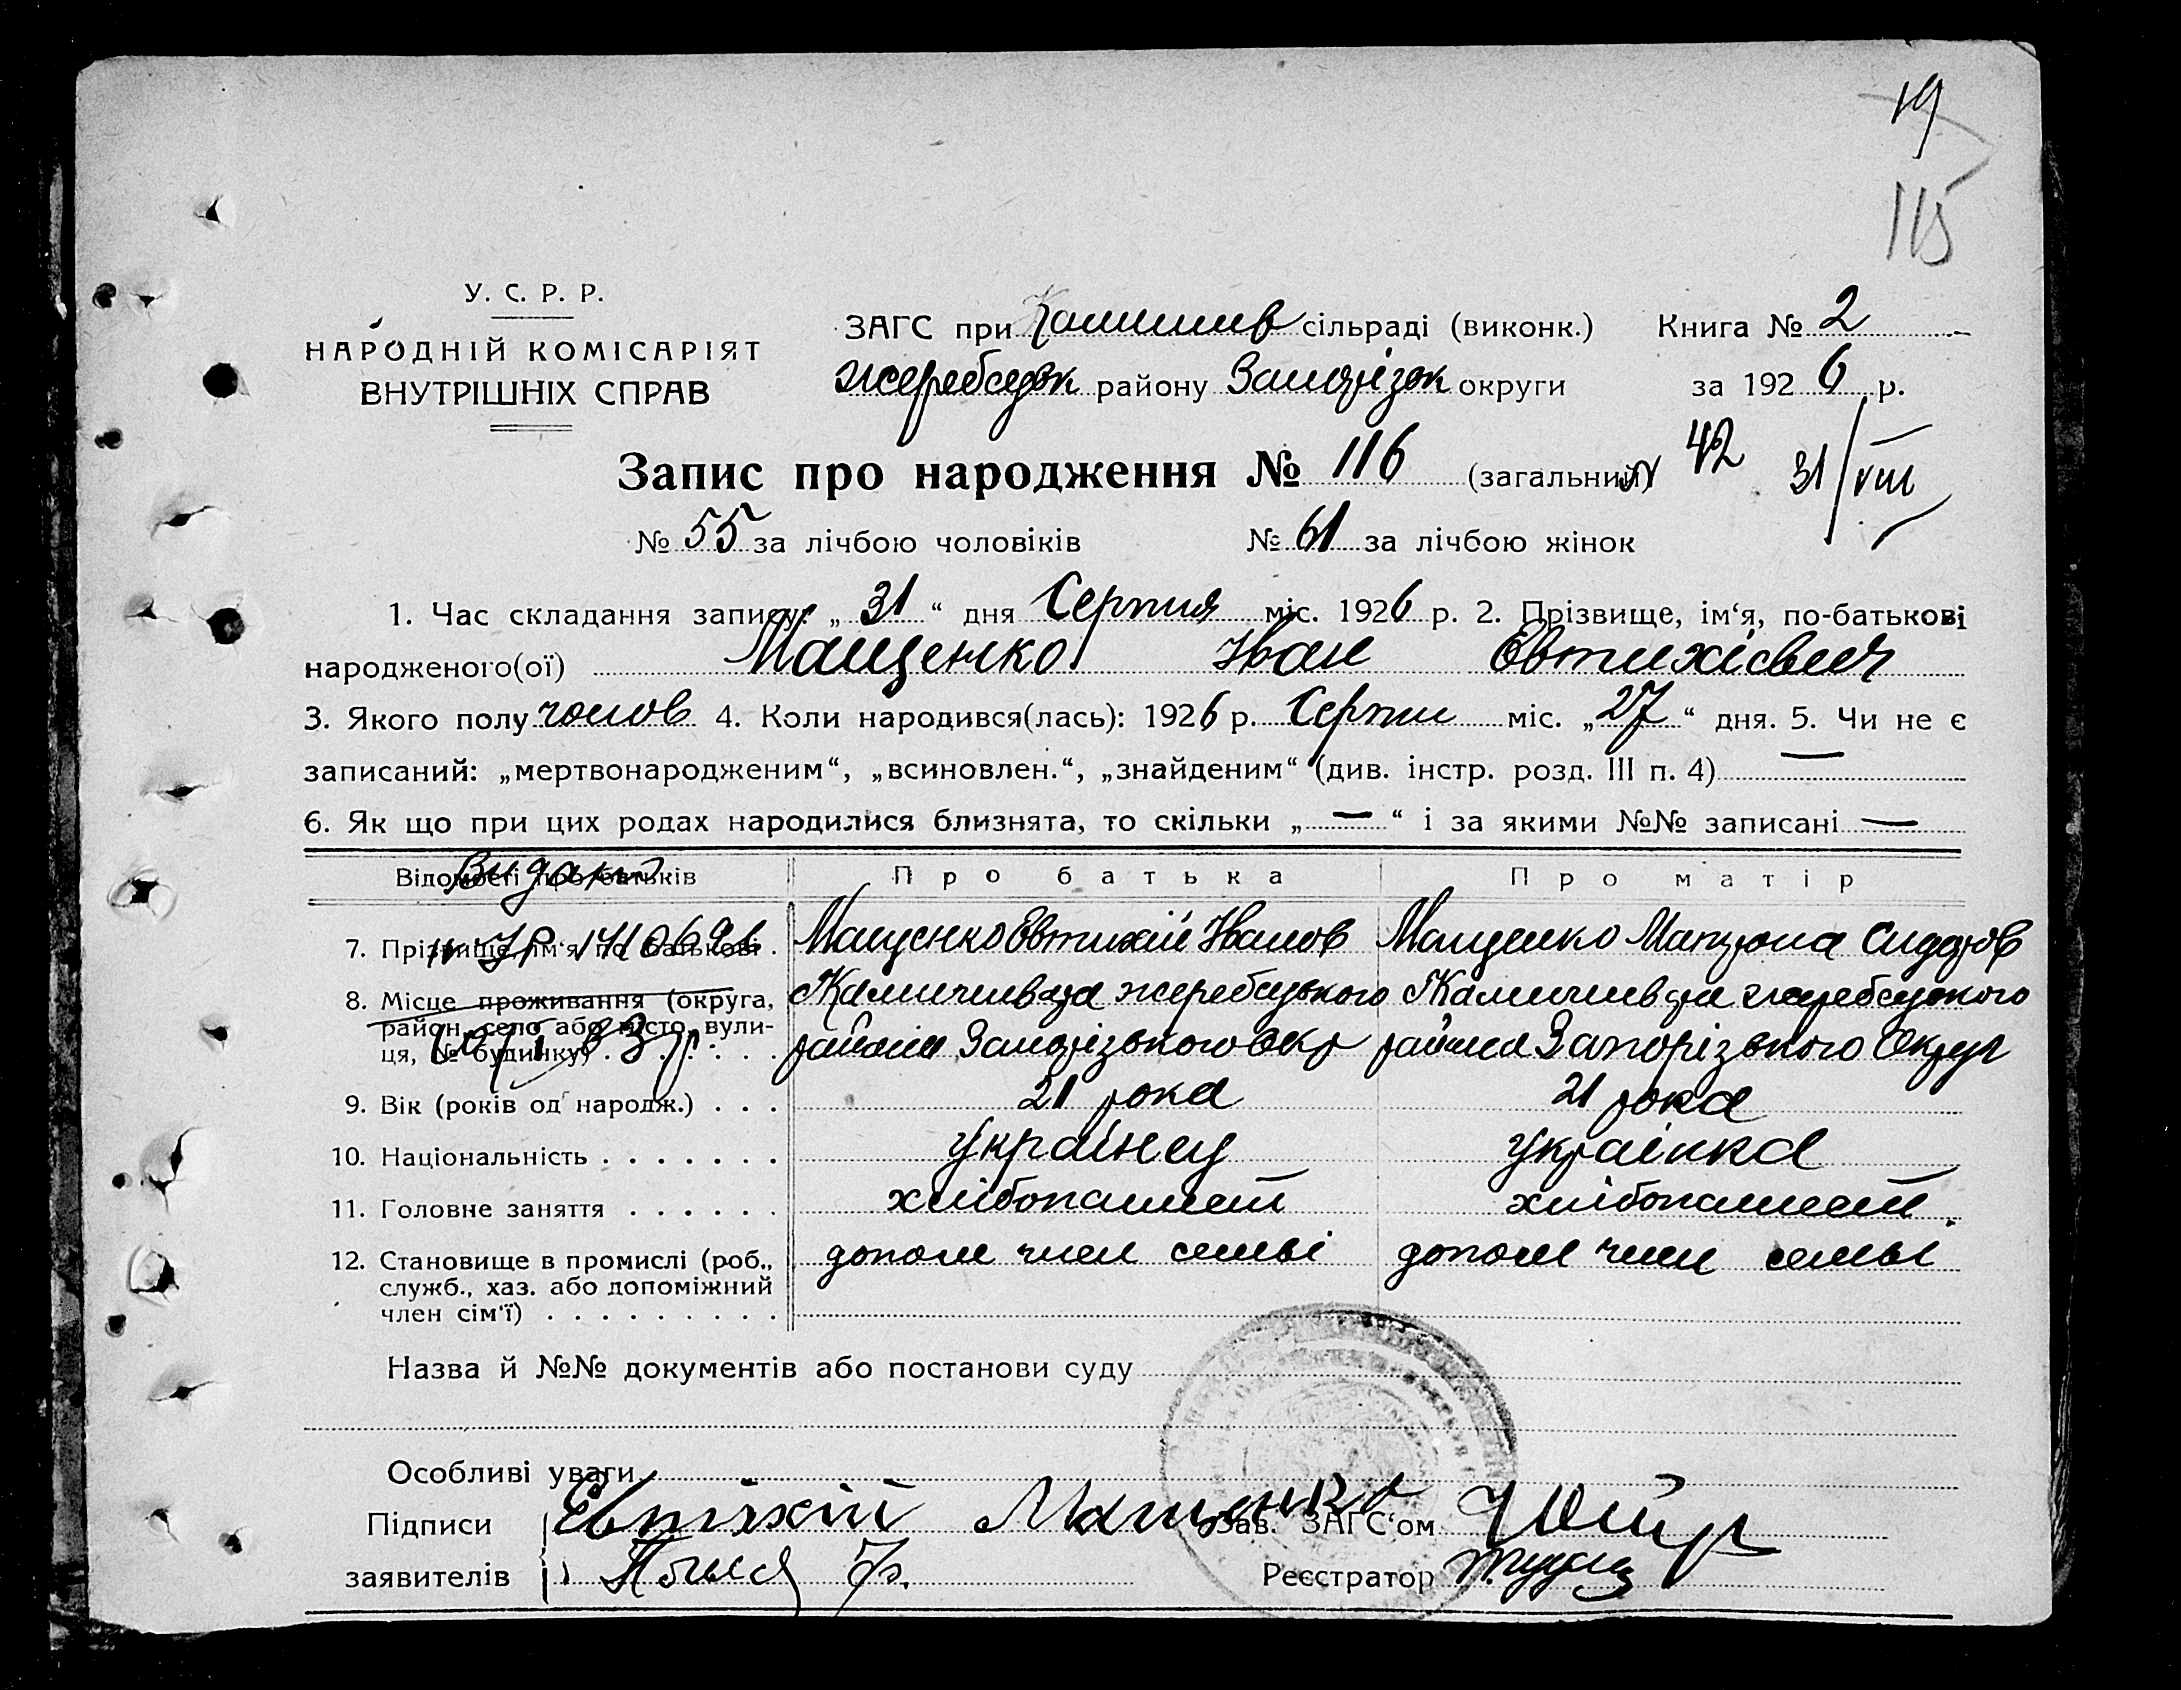 19
115
У. С. Р. Р.
НАРОДНІЙ КОМІСАРІЯТ
ВНУТРІШНІХ СПРАВ
ЗАГС при сільраді (виконк.) Книга № 2
жеребецьк району Запорізьк округи за 1926 р.
Запис про народження № 116 (загальний) 42 31/VIII
№ 55 за лічбою чоловіків № 61 за лічбою жінок
1. Час складання запису: „31“ дня Серпня міс. 1926 р. 2. Прізвище, ім‘я, по-батькові
народженого(ої) Мащенко Іван Евтихієвич
3. Якого полу чолов 4. Коли народився(лась): 1926 р. Серпн міс. „27“ дня. 5. Чи не є
записаний: „мертвонародженим“, „всиновлен.“, „знайденим“ (див. інстр. розд. III п. 4) —
6. Як що при цих родах народилися близнята, то скільки „—“ і за якими №№ записані —
Відомості про батьків Про батька Про матір
Видано
7. Прізвище, ім‘я, по батькові . Мащенко Евтихій Іванов Мащенко Мотрона Сидоров
8. Місце проживання (округа, район, село або місто, вулиця, № будинку) . . . . .
жеребецького жеребецького
району Запорізького Окр района Запорізького Округи
9. Вік (років од народж.) . . . 21 рока 21 рока
10. Національність . . . . . . . українец українка
11. Головне заняття . . . . . . хлібопашест хлібопашест
12. Становище в промислі (роб., допом член семьі допом член семьі
служб., хаз. або допоміжний
член сім‘ї) . . . . . . . . .
Назва й №№ документів або постанови суду
Особливі уваги
Підписи Евтіхій Мащенко Зав. ЗАГС‘ом
заявителів Реєстратор